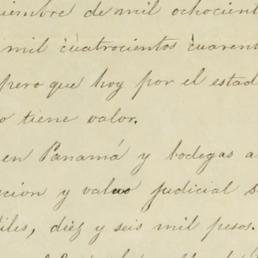 iembre de mil ochocient
mil cuatrocientos cuaren
pero que hoy por el estad
o tiene valor.
en Panamá y bodegas a
cion y valuo judicial s
iles, diez y seis mil pesos.